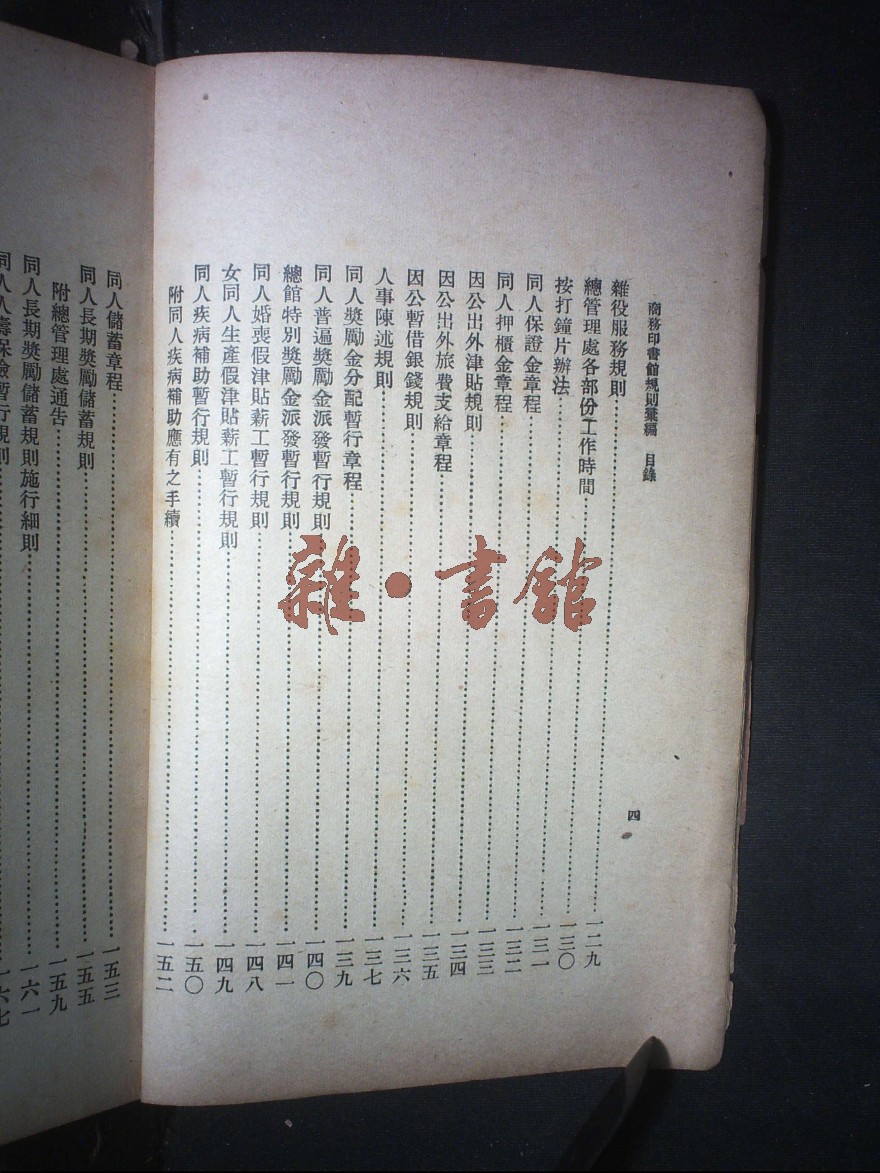 商務印書館規則彙編 目錄
四
雜役服務規則……一二九
總管理處各部份工作時間……一三〇
按打鐘片辦法……一三一
同人保證金章程……一三二
同人押櫃金章程……一三三
因公出外津貼規則……一三四
因公出外旅費支給章程……一三五
因公暫借銀錢規則……一三六
人事陳述規則……一三七
同人獎勵金分配暫行章程……一三九
同人普遍獎勵金派發暫行規則……一四〇
總館特別獎勵金派發暫行規則……一四一
同人婚喪假津貼薪工暫行規則……一四八
女同人生產假津貼薪工暫行規則……一四九
同人疾病補助暫行規則……一五〇
附同人疾病補助應有之手續……一五二
同人儲蓄章程……一五三
同人長期獎勵儲蓄規則……一五五
附總管理處通告……一五九
同人長期獎勵儲蓄規則施行細則……一六一
同人人壽保險暫行規則……一六七
雜·書館